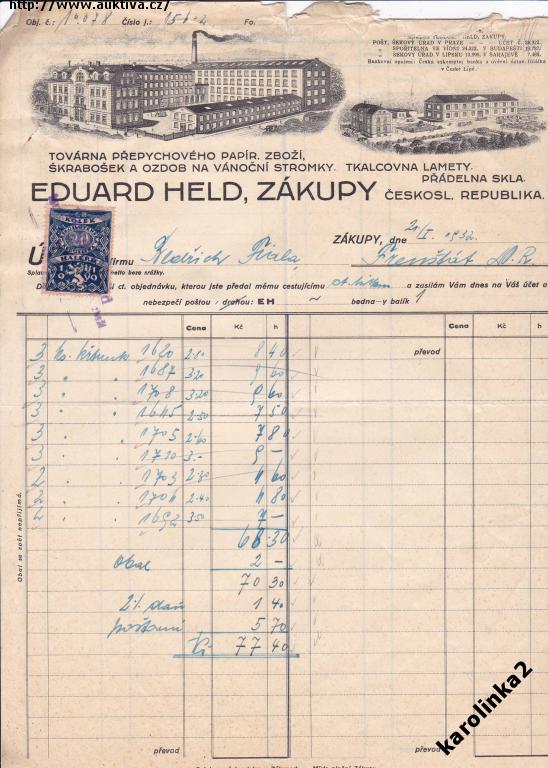 http://www.auktiva.cz/
Obj. č.: Číslo j.: Fo.
HELD, ZÁKUPY
POŠT. ŠEKOVÝ ÚRAD V PRAZE
SPOŘITELNA VE VÍDNI V BUDAPEŠTI
ŠEKOVÝ ÚŘAD V LIPSKU V SARAJEVĚ
Bankovní spojení: Česká eskomptní banka a úvěrní ústav, filiálka
v České Lípě.
TOVÁRNA PŘEPYCHOVÉHO PAPÍR. ZBOŽÍ,
ŠKRABOŠEK A OZDOB NA VÁNOČNÍ STROMKY. TKALCOVNA LAMETY.
PŘÁDELNA SKLA.
EDUARD HELD, ZÁKUPY ČESKOSL. REPUBLIKA.
KOLEK
HALÉŘŮ
ZÁKUPY, dne 1932.
firmu Bedřich Fiala, Frenštát p. R.
netto beze srážky.
ct. objednávku, kterou jste předal mému cestujícímu a zasílám Vám dnes na Váš účet a
nebezpečí poštou / drahou: EH ~ bedna-y balík 1
Cena Kč h Cena Kč h
3 1620 2·80 8 40 převod
3 " " 1687 3·20 9 60
3 " " 1708 3·20 9 60
3 " " 1645 2·50 7 50
3 " " 1705 2·60 7 80
3 " " 1710 3·- 9 -
2 " " 1703 2·30 4 60
2 " " 1706 2·40 4 80
2 " " 1692 3·50 7 -
68·30
Obal 2 -
70 30
2% daň 1 40
poštovné 5 70
Kč 77 40
Obal se zpět nepřijímá.
převod převod
karolinka2